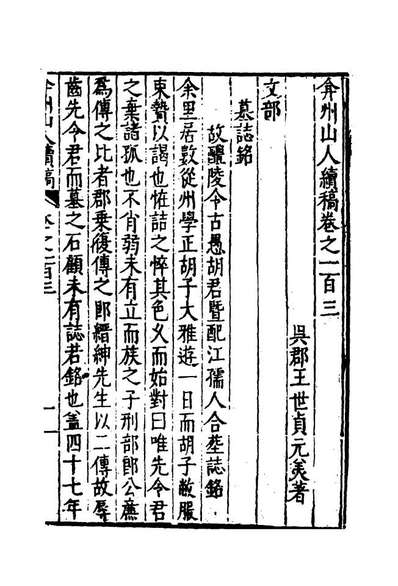 弇州山人續稿卷之一百三
吳郡王世貞元美著
文部
墓誌銘
故醴陵令古愚胡君暨配江孺人合塟誌銘
余里居數從州學正胡子大雅遊一日而胡子敝服
束贄以謁也怪詰之悴其色乂而始對曰唯先令君
之棄諸孤也不肖弱未有立而族之子刑部郎公廡
為傳之比者郡乗復傳之即縉紳先生以二傳故辱
齒先令君而墓之石顧未有誌若銘也盖四十七年
弇州山人續稿
卷之一百三
一